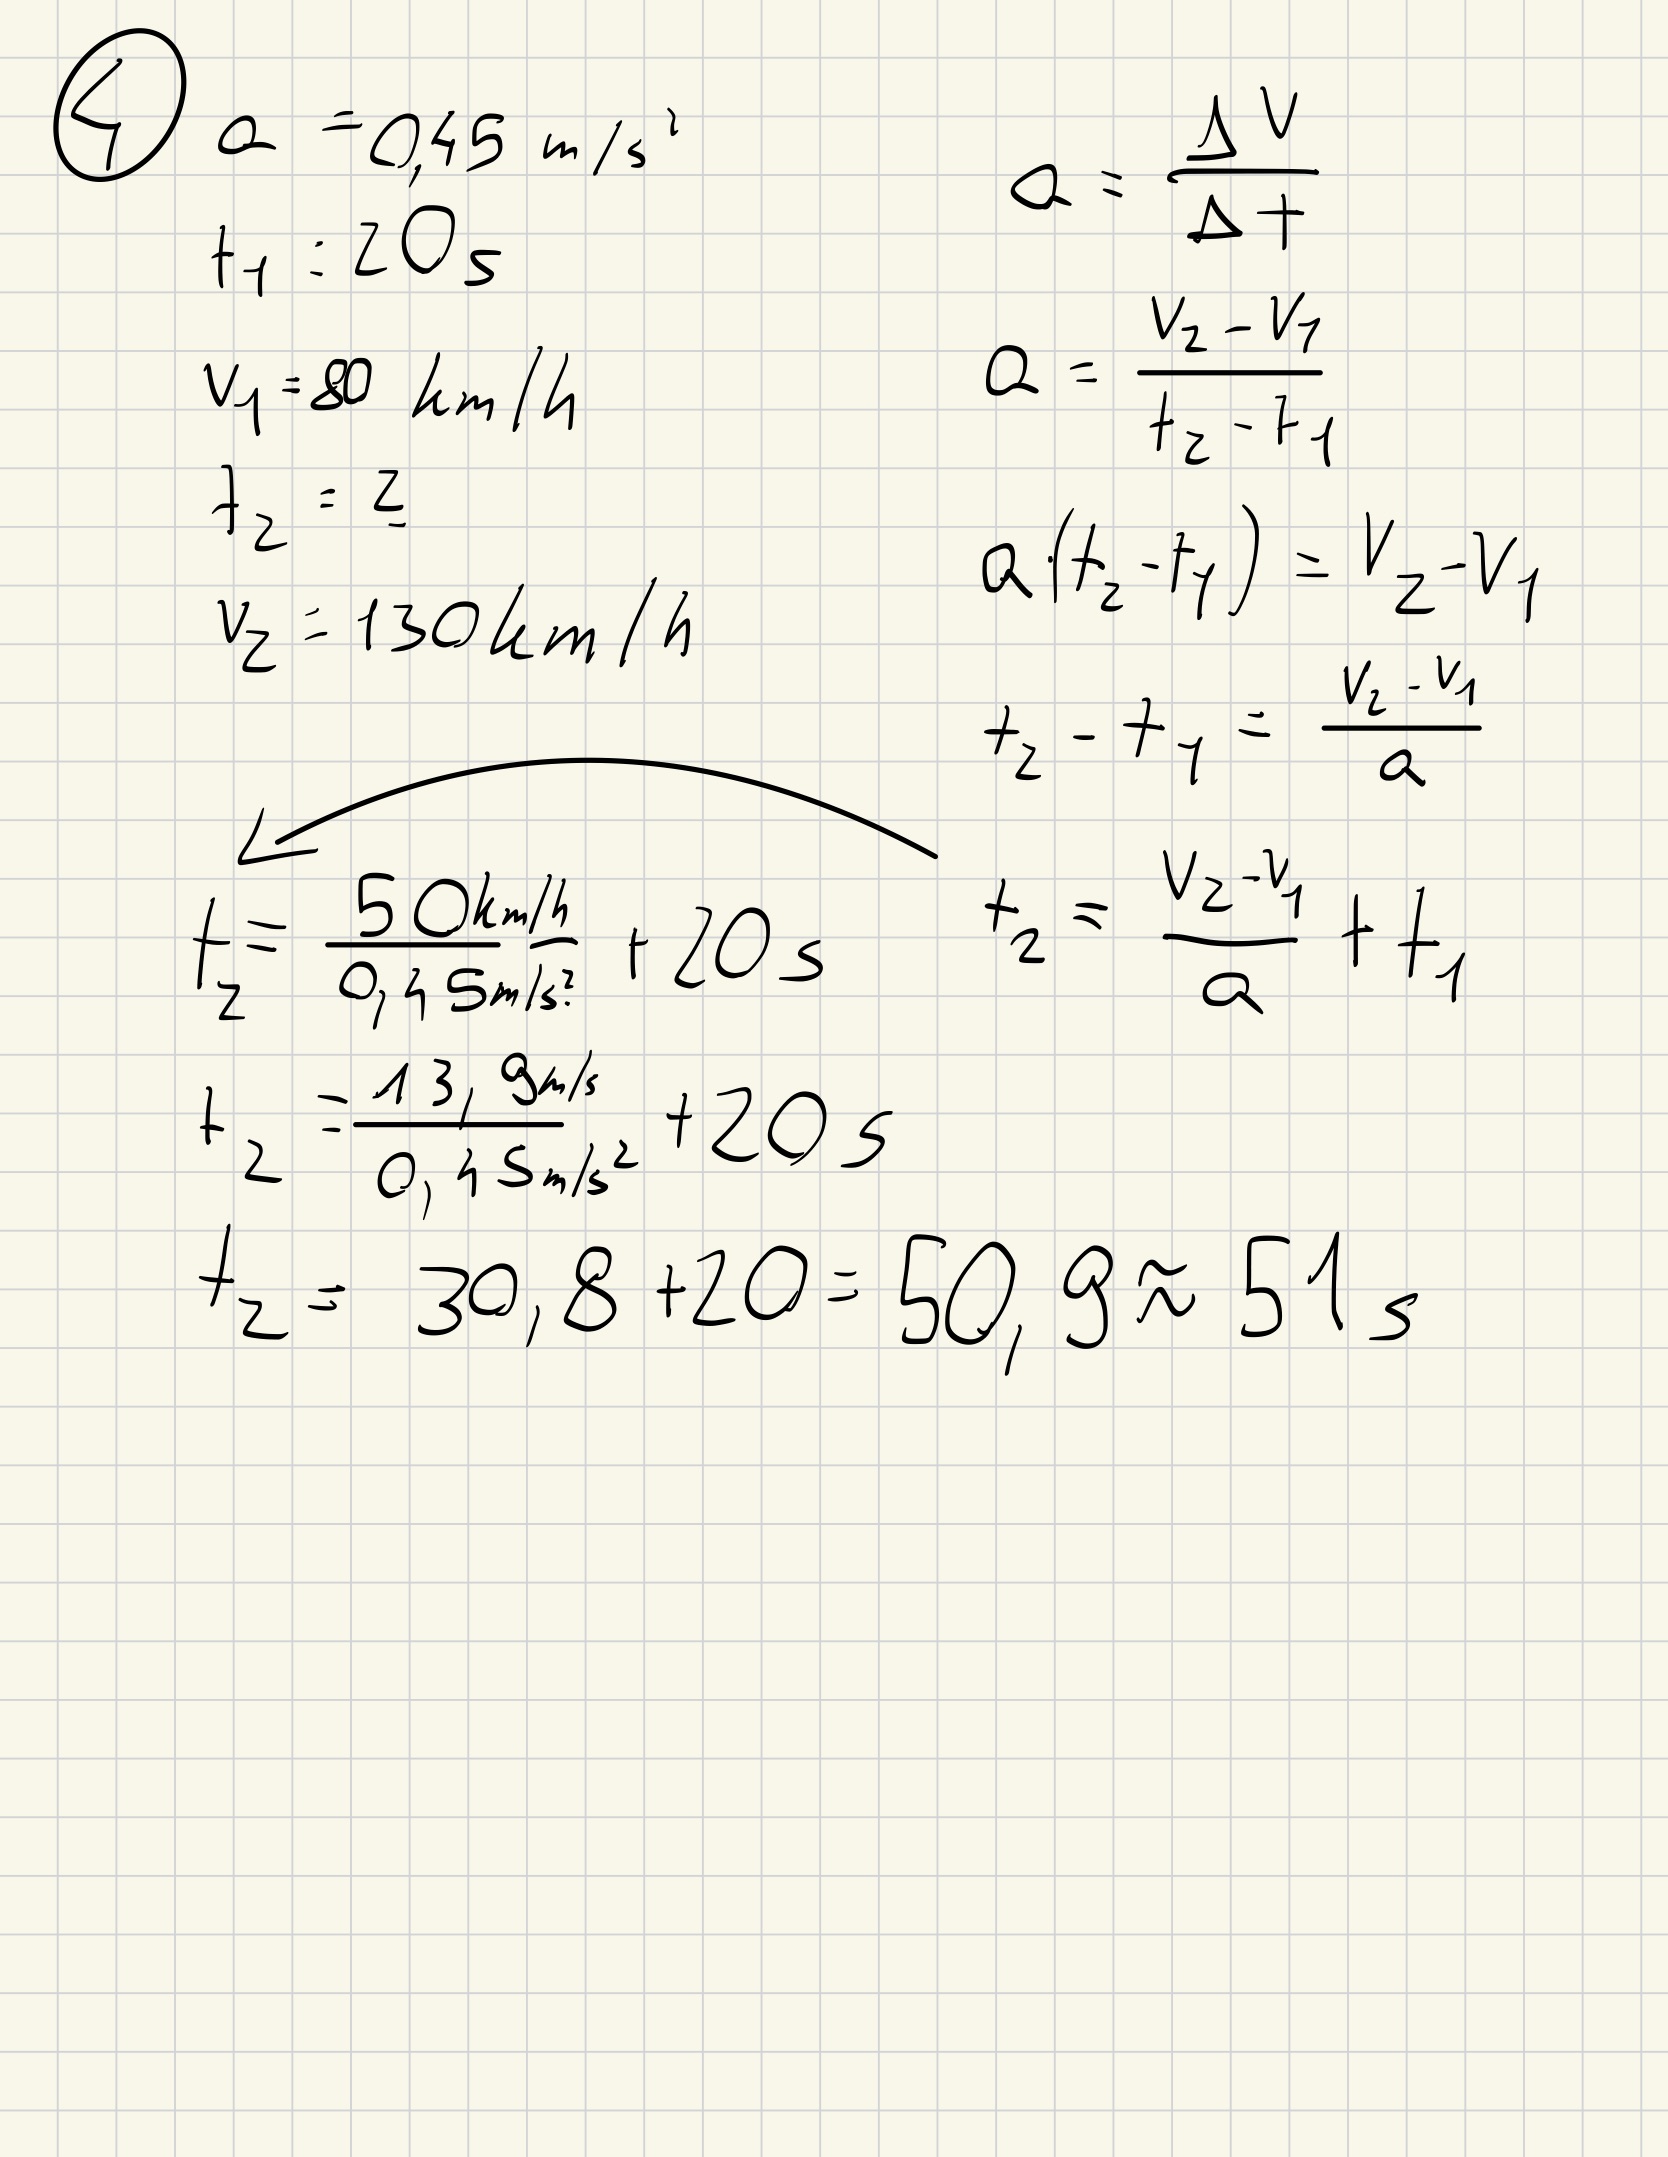 4
a = 0,45 m/s²
t₁ = 20 s
v₁ = 80 km/h
t₂ = ?
v₂ = 130 km/h
a = ΔV / Δt
a = (v₂ - v₁) / (t₂ - t₁)
a · (t₂ - t₁) = v₂ - v₁
t₂ - t₁ = (v₂ - v₁) / a
t₂ = (v₂ - v₁) / a + t₁
t₂ = 50 km/h / 0,45 m/s² + 20 s
t₂ = 13,9 m/s / 0,45 m/s² + 20 s
t₂ = 30,8 + 20 = 50,9 ≈ 51 s